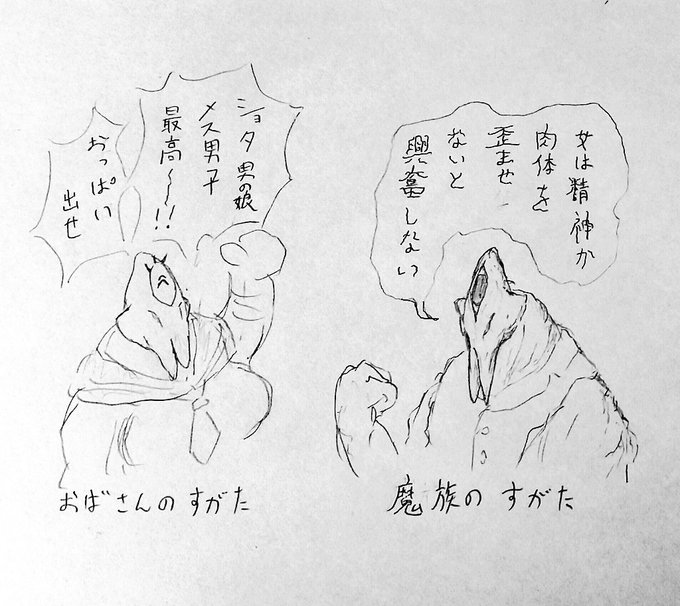 女は精神か
肉体を
歪ませ
ないと
興奮しない
魔族のすがた
ショタ 男の娘
メス男子
最高〜!!
おっぱい
出せ
おばさんのすがた